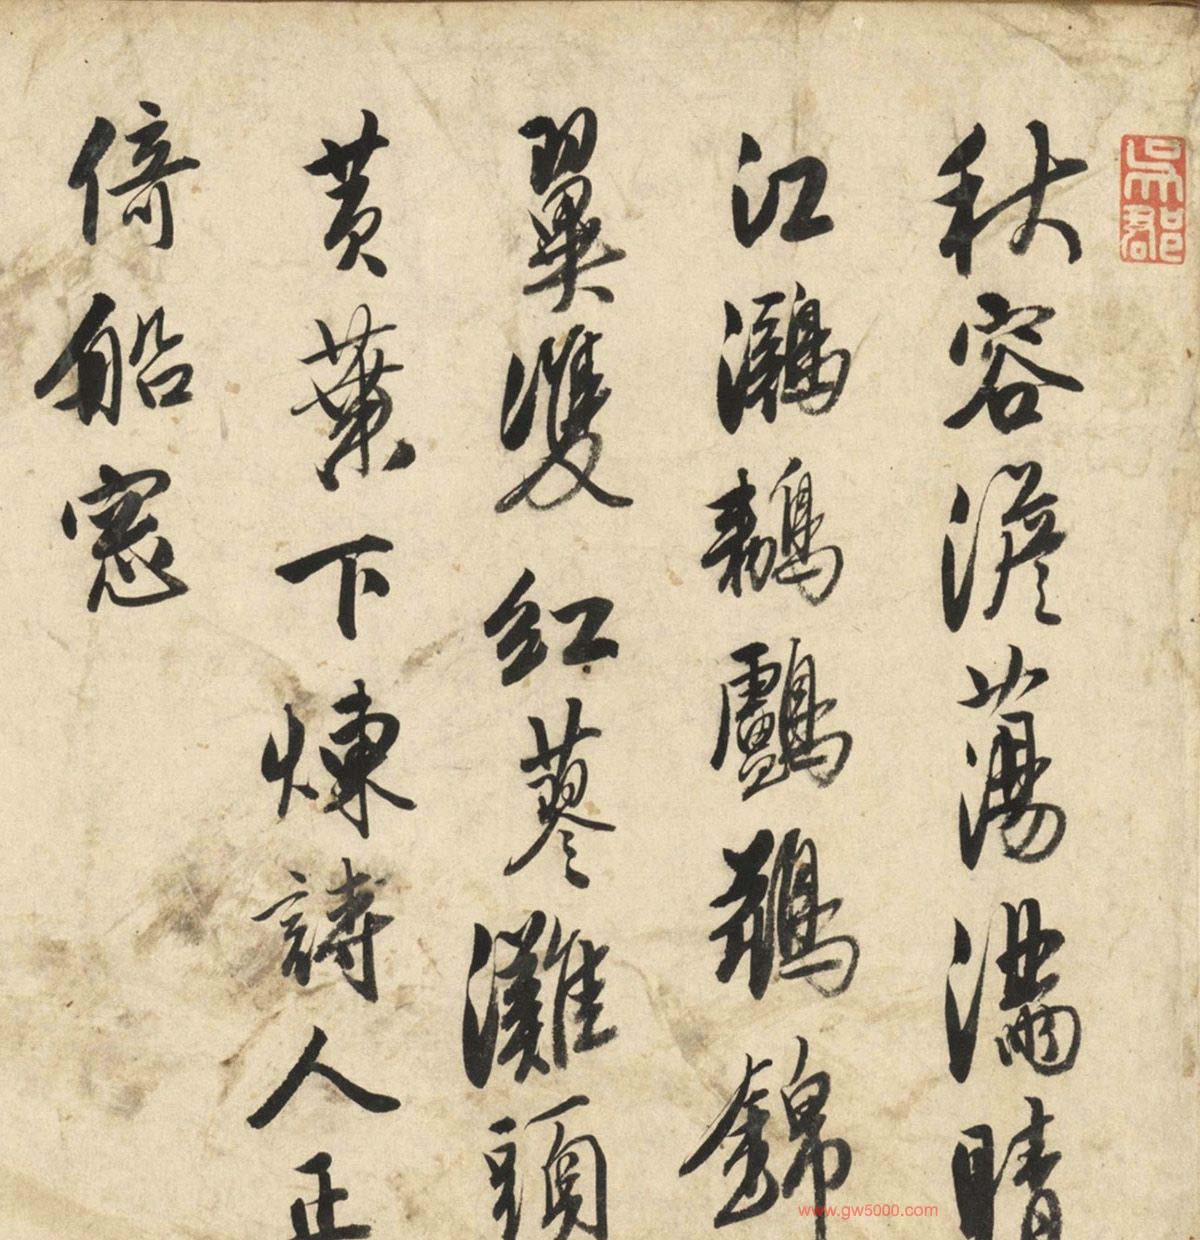 吳郡
秋容澹蕩滿晴
江鸂鶒鸕鷀錦
翼雙紅蓼灘頭
黃葉下煉詩人正
倚船窓
www.gw5000.com